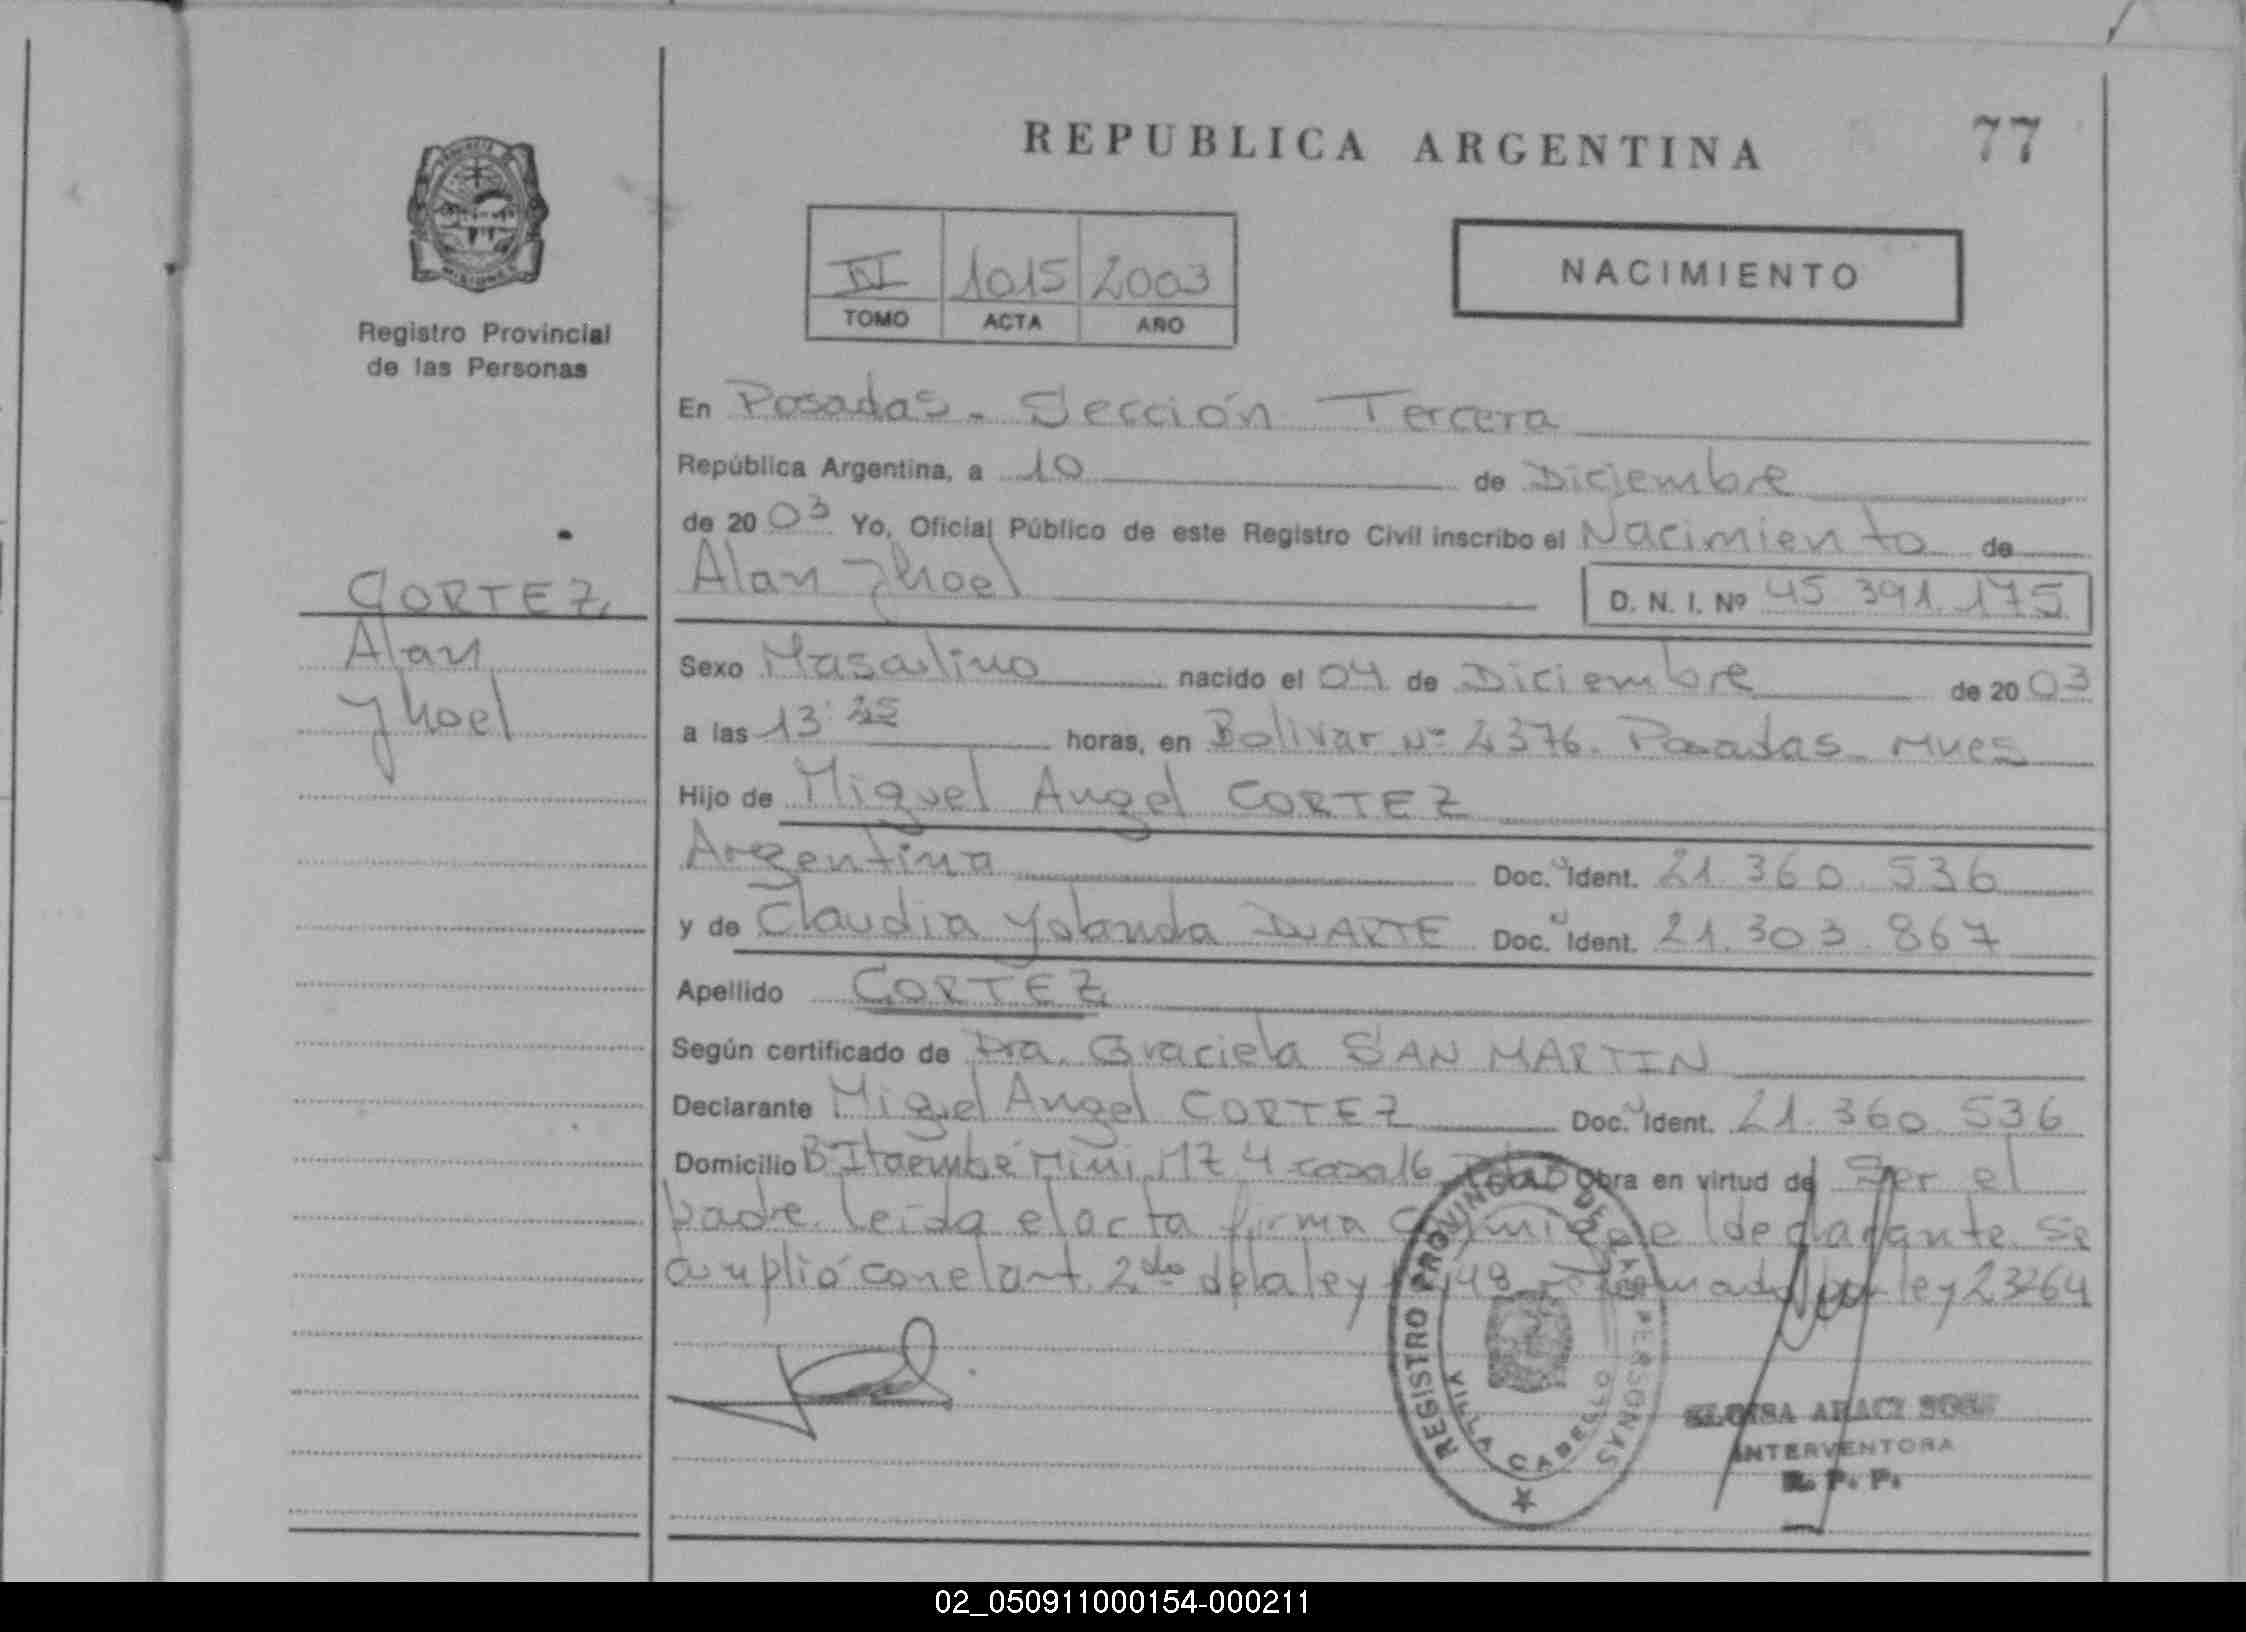 REPUBLICA ARGENTINA
77
Registro Provincial
de las Personas
1015 2003
TOMO ACTA AÑO
NACIMIENTO
CORTEZ
Alan
Jhoel
En Posadas - Sección Tercera
República Argentina, a 10 de Diciembre
de 2003 Yo, Oficial Público de este Registro Civil inscribo el Nacimiento de
Alan Jhoel
D. N. I. Nº 45 391 175
Sexo Masculino nacido el 04 de Diciembre de 2003
a las 13 horas, en Bolivar Nº 2376. Posadas
Hijo de Miguel Angel CORTEZ
Argentina Doc. Ident. 21.360.536
y de Claudia Yolanda DUARTE Doc. Ident. 21.303.867
Apellido CORTEZ
Según certificado de Dra. Graciela SAN MARTIN
Declarante Miguel Angel CORTEZ Doc. Ident. 21.360.536
Domicilio B Itaembé Mini Mz 4 casa 16 Obra en virtud de Ser el
padre. leida el acta firma conmigo el declarante. Se
cumplió con el art. 2do de la ley ley 23264
REGISTRO PROVINCIAL DE LAS PERSONAS
VILLA CABELLO
INTERVENTORA
R. P. P.
02_050911000154-000211